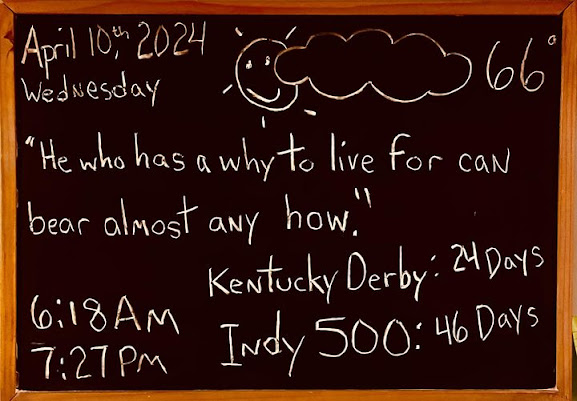 April 10th, 2024
Wednesday
66°
"He who has a why to live for can
bear almost any how."
Kentucky Derby: 24 Days
Indy 500: 46 Days
6:18 AM
7:27 PM